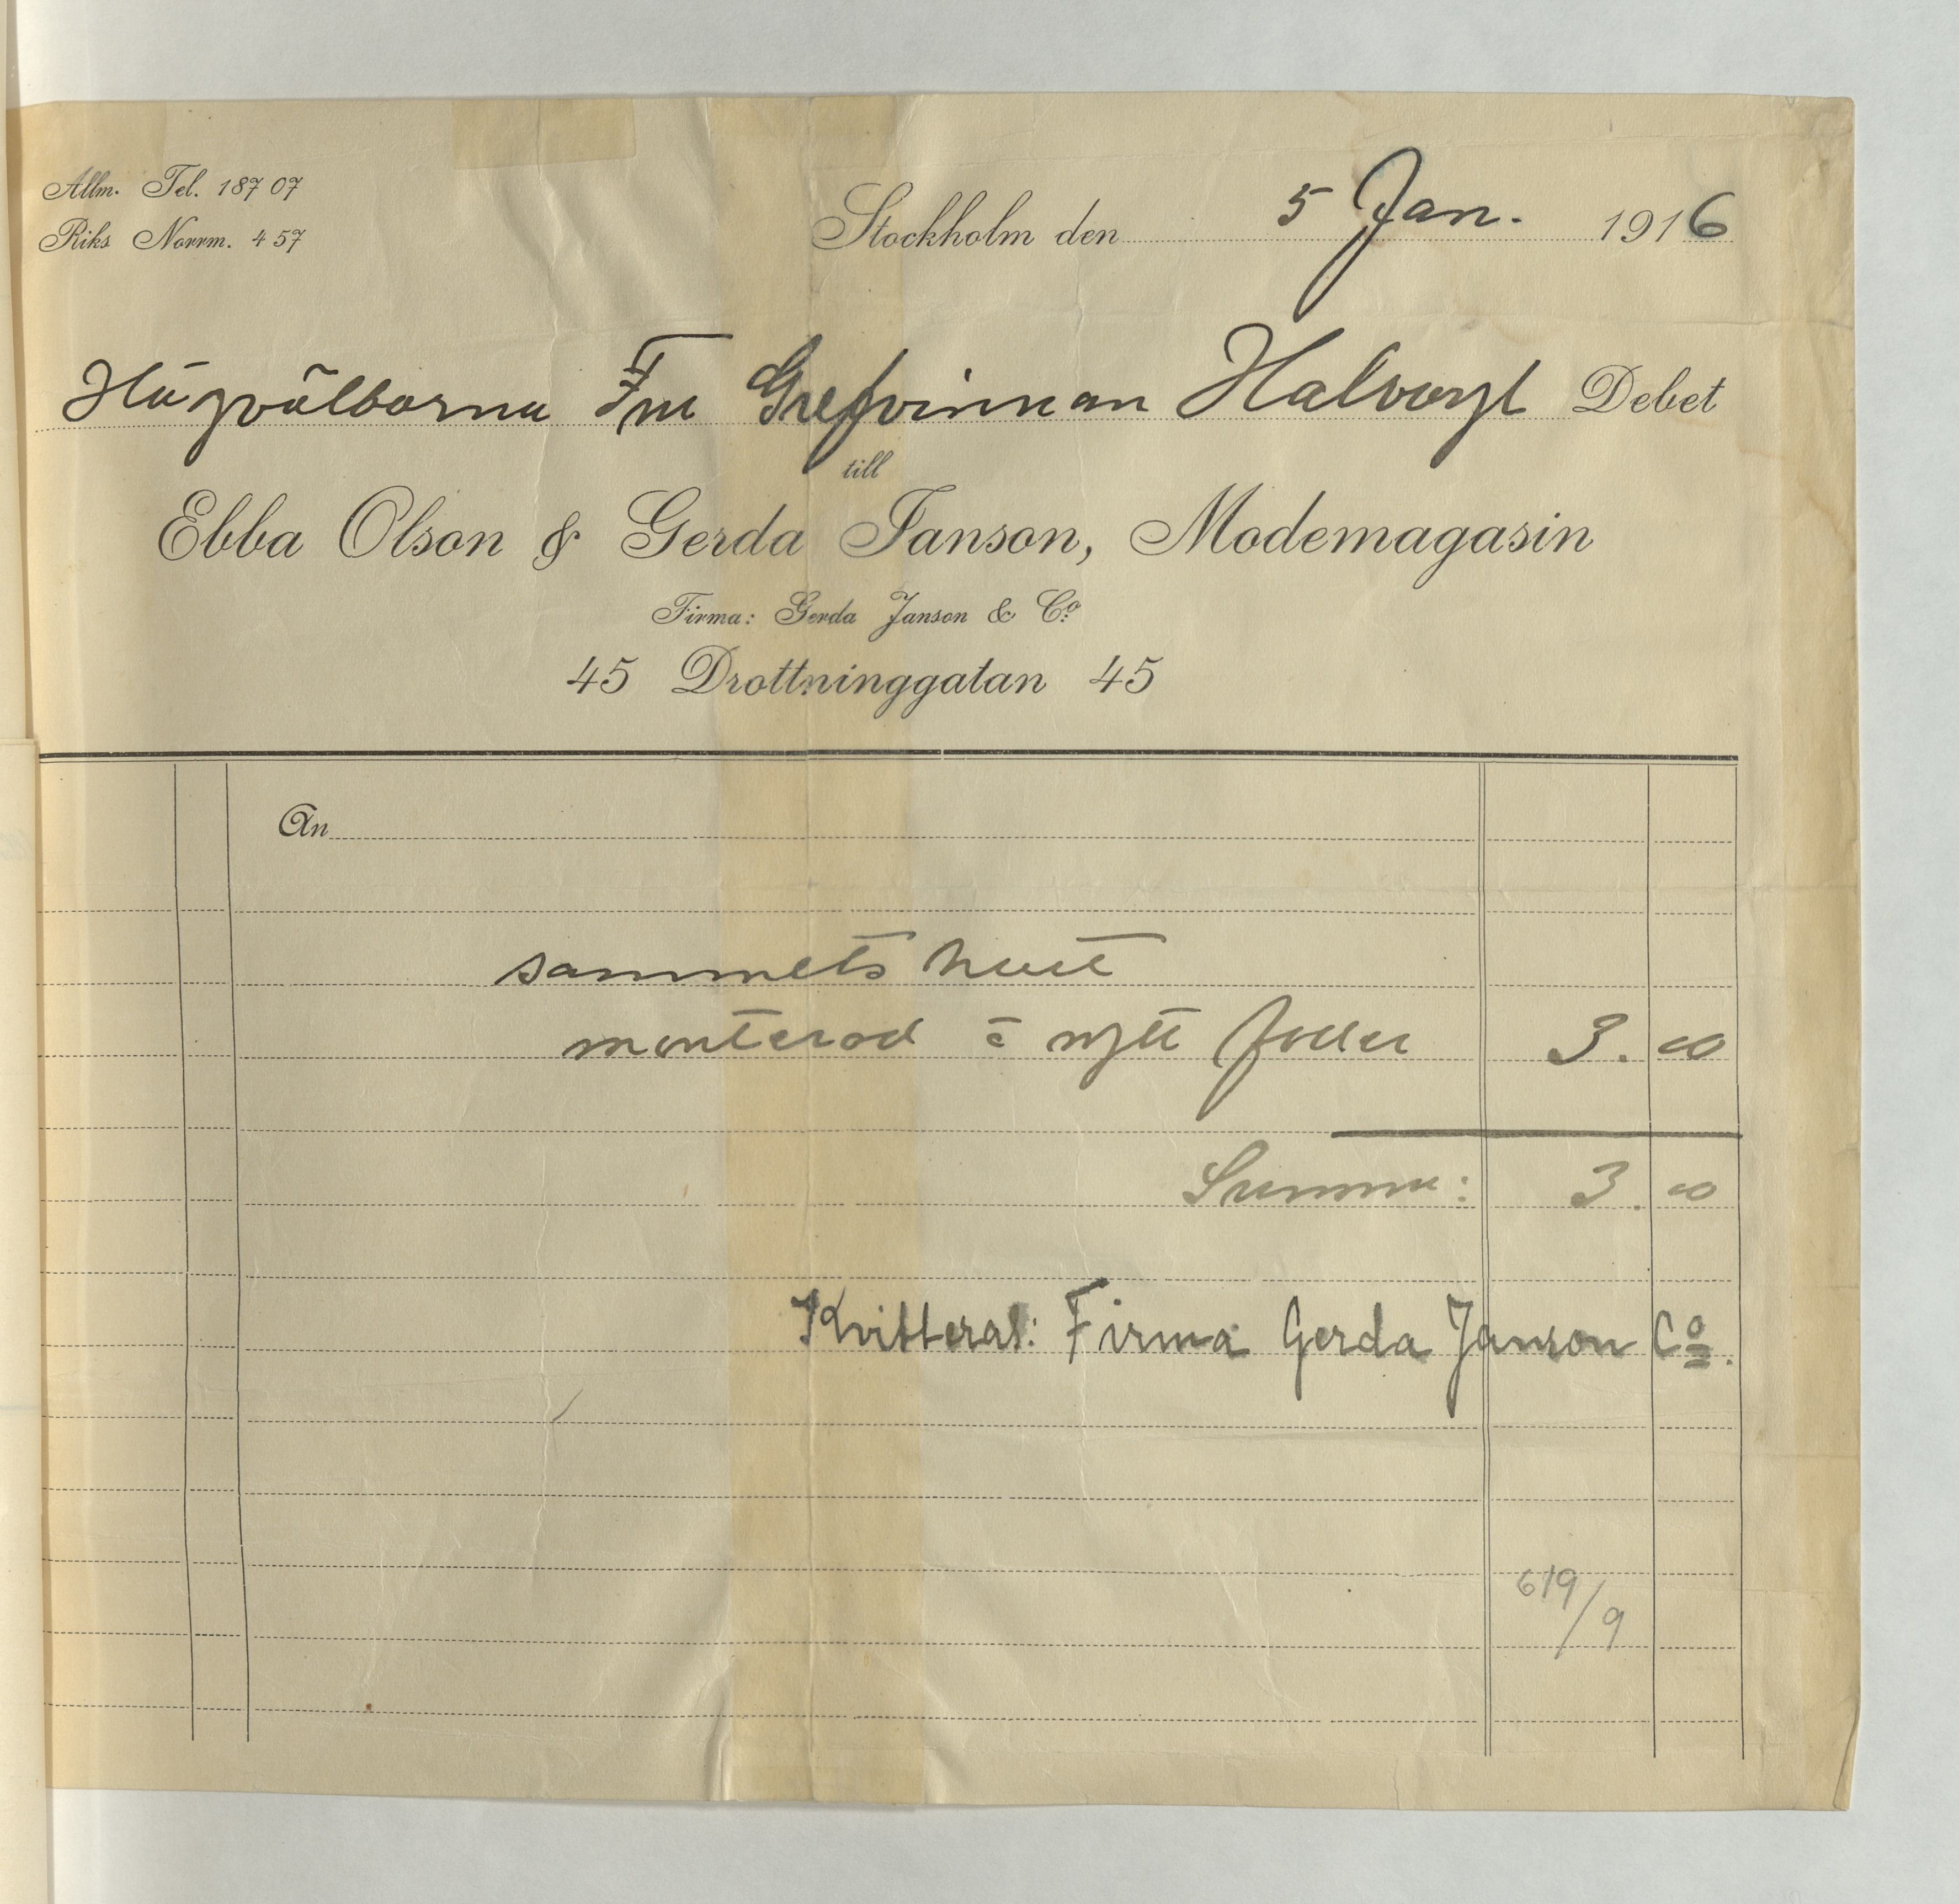 Allm. Tel. 187 07
Riks Norrm. 4 57
Stockholm den 5 Jan. 1916
Högvälborna Fru Grefvinnan Halwyl Debet
till
Ebba Olson & Gerda Janson, Modemagasin
Firma: Gerda Janson & Co.
45 Drottninggatan 45
An
sammets hatt
monterad o nytt foder 3.00
Summa: 3.00
Kvitteras: Firma Gerda Janson Co.
619/9